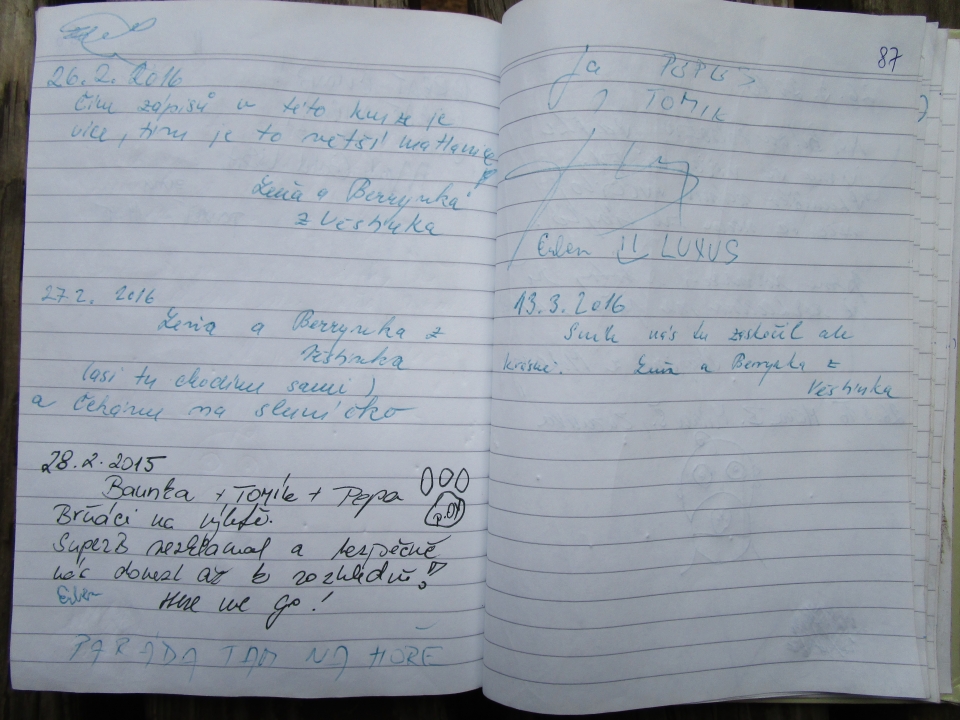 26.2. 2016
Čím zápisů v této knize je
více, tím je to větší matlanice
Zeňa a Berrynka
z Věstínka
27.2. 2016
Zeňa a Berrynka z
Věstínka
(asi tu chodíme sami)
a čekáme na sluníčko
28.2.2015
Baunka + Tomík + Pepa
Brňáci na výletě.
SuperB nezklamal a bezpečně
nás donesl až k rozhledně!
Here we go!
PARÁDA TAM NAHOŘE
87
Já
TOMIK
LUXUS
13.3.2016
Sníh nás tu zaskočil ale
krásné. Zeňa a Berrynka z
Věstínka